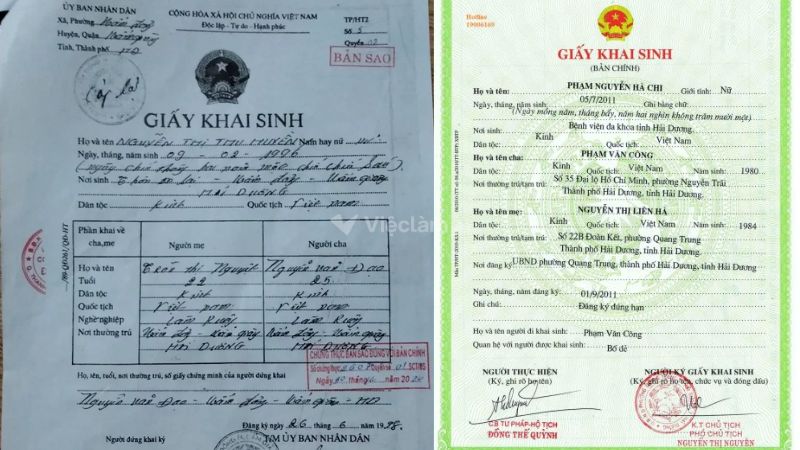 ỦY BAN NHÂN DÂN
Xã, Phường
Huyện, Quận
Tỉnh, Thành phố HD
CỘNG HÒA XÃ HỘI CHỦ NGHĨA VIỆT NAM
Độc lập - Tự do - Hạnh phúc
TP/HT2
Số 5
Quyển 02
BẢN SAO
GIẤY KHAI SINH
Họ và tên NGUYỄN THỊ THU HUYỀN Nam hay nữ nữ
Ngày, tháng, năm sinh 09 - 02 - 1996
Nơi sinh
HẢI DƯƠNG
Dân tộc Kinh Quốc tịch Việt Nam
Phần khai về cha,mẹ
Người mẹ
Người cha
Họ và tên Trần thị Nguyệt Nguyễn
Tuổi 22 25
Dân tộc Kinh Kinh
Quốc tịch Việt nam Việt nam
Nghề nghiệp Làm Ruộng Làm Ruộng
Nơi thường trú
HẢI DƯƠNG HẢI DƯƠNG
CHỨNG THỰC BẢN SAO ĐÚNG VỚI BẢN CHÍNH
Số chứng thực Quyển số SCT/BS
Ngày tháng năm 20
Họ, tên, tuổi, nơi thường trú, số giấy chứng minh của người đứng khai
Đăng ký ngày 26 tháng 6 năm 1998.
Người đứng khai ký
T/M ỦY BAN NHÂN DÂN
Việclàm
Hotline
19006169
GIẤY KHAI SINH
(BẢN CHÍNH)
Họ và tên: PHẠM NGUYỄN HÀ CHI Giới tính: Nữ
Ngày, tháng, năm sinh: 05/7/2011 Ghi bằng chữ
(Ngày mồng năm, tháng bảy, năm hai nghìn không trăm mười một)
Nơi sinh: Bệnh viện đa khoa tỉnh Hải Dương
Dân tộc: Kinh Quốc tịch: Việt Nam
Họ và tên cha: PHẠM VĂN CÔNG
Dân tộc: Kinh Quốc tịch: Việt Nam 1980
Nơi thường trú/tạm trú: Số 35 Đại lộ Hồ Chí Minh, phường Nguyễn Trãi
Thành phố Hải Dương, tỉnh Hải Dương.
Họ và tên mẹ: NGUYỄN THỊ LIÊN HÀ
Dân tộc: Kinh Quốc tịch: Việt Nam 1984
Nơi thường trú/tạm trú: Số 22B Đoàn Kết, phường Quang Trung
Thành phố Hải Dương, tỉnh Hải Dương.
Nơi đăng ký: UBND phường Quang Trung, thành phố Hải Dương, tỉnh Hải Dương
Ngày, tháng, năm đăng ký: 01/9/2011
Ghi chú: Đăng ký đúng hạn
Họ và tên người đi khai sinh: Phạm Văn Công
Quan hệ với người được khai sinh: Bố đẻ
NGƯỜI THỰC HIỆN
(Ký, ghi rõ họ tên)
NGƯỜI KÝ GIẤY KHAI SINH
(Ký, ghi rõ họ tên, chức vụ và đóng dấu)
CB TƯ PHÁP-HỘ TỊCH
ĐỒNG THẾ QUỲNH
K.T CHỦ TỊCH
PHÓ CHỦ TỊCH
NGUYỄN THỊ NGUYÊN